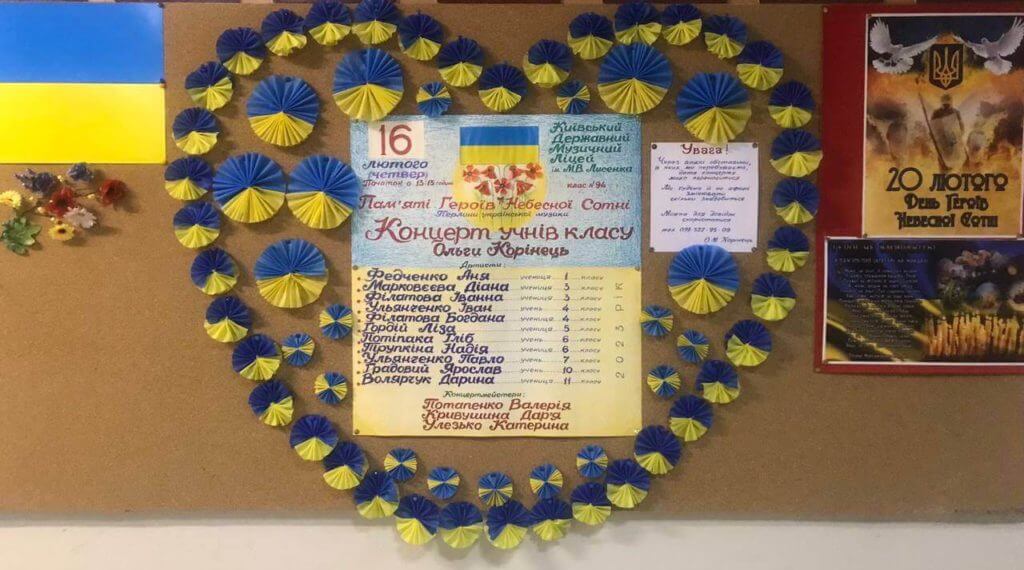 16
лютого
(четвер)
Початок о 15:15 годині
Київський
Державний
Музичний
Ліцей
ім. М.В. Лисенка
клас №94
Пам'яті Героїв Небесної Сотні
Перлини української музики
Концерт учнів класу
Ольги Корінець
Артисти:
Федченко Аня учениця 1 класу
Марковєєва Діана учениця 3 класу
Філатова Іванна учениця 3 класу
Ульянченко Іван учень 4 класу
Філатова Богдана учениця 4 класу
Гордій Ліза учениця 5 класу
Потіпака Гліб учень 6 класу
Трупкіна Надія учениця 6 класу
Ульянченко Павло учень 7 класу
Градовий Ярослав учень 10 класу
Волярчук Дарина учениця 11 класу
2023 рік
Концертмейстери:
Потапенко Валерія
Кривушина Дар'я
Улезько Катерина
Увага!
Через важкі обставини,
в яких ми перебуваємо,
дата концерту
може переноситися
О.М. Корінець
20 лютого
День Героїв
Небесної Сотні